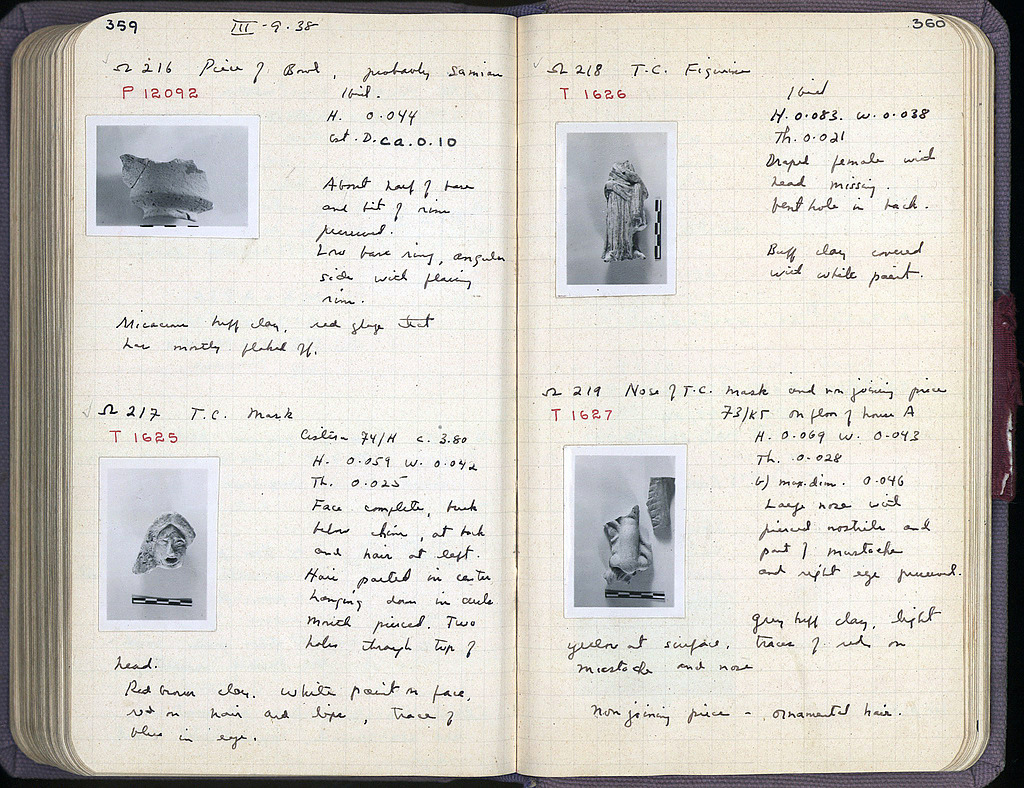 359
III-9-38
Ω 216 Piece of Bowl, probably Samian
P 12092
Ibid.
H. 0.044
est. D. ca. 0.10
About half of base
and bit of rim
preserved.
Low base ring, angular
side with flaring
rim.
Micaceous buff clay, red glaze that
has mostly flaked off.
Ω 217 T.C. Mask
T 1625
Cistern 74/H c. 3.80
H. 0.059 W. 0.042
Th. 0.025
Face complete, back
below chin, at back
and hair at left.
Hair parted in center
hanging down in curls
Mouth pierced. Two
holes through top of
head.
Red brown clay. White paint on face,
red on hair and lips, trace of
blue in eye.
360
Ω 218 T.C. Figurine
T 1626
Ibid
H. 0.083. W. 0.038
Th. 0.021
Draped female with
head missing.
Vent hole in back.
Buff clay covered
with white paint.
Ω 219 Nose of T.C. Mask and non joining piece
T 1627
73/KS on floor of house A
H. 0.069 W. 0.043
Th. 0.028
b) max. dim. 0.046
Large nose with
pierced nostrils and
part of mustache
and right eye preserved.
grey buff clay, light
yellow at surface, traces of red on
mustache and nose
Non joining piece - ornamental hair.